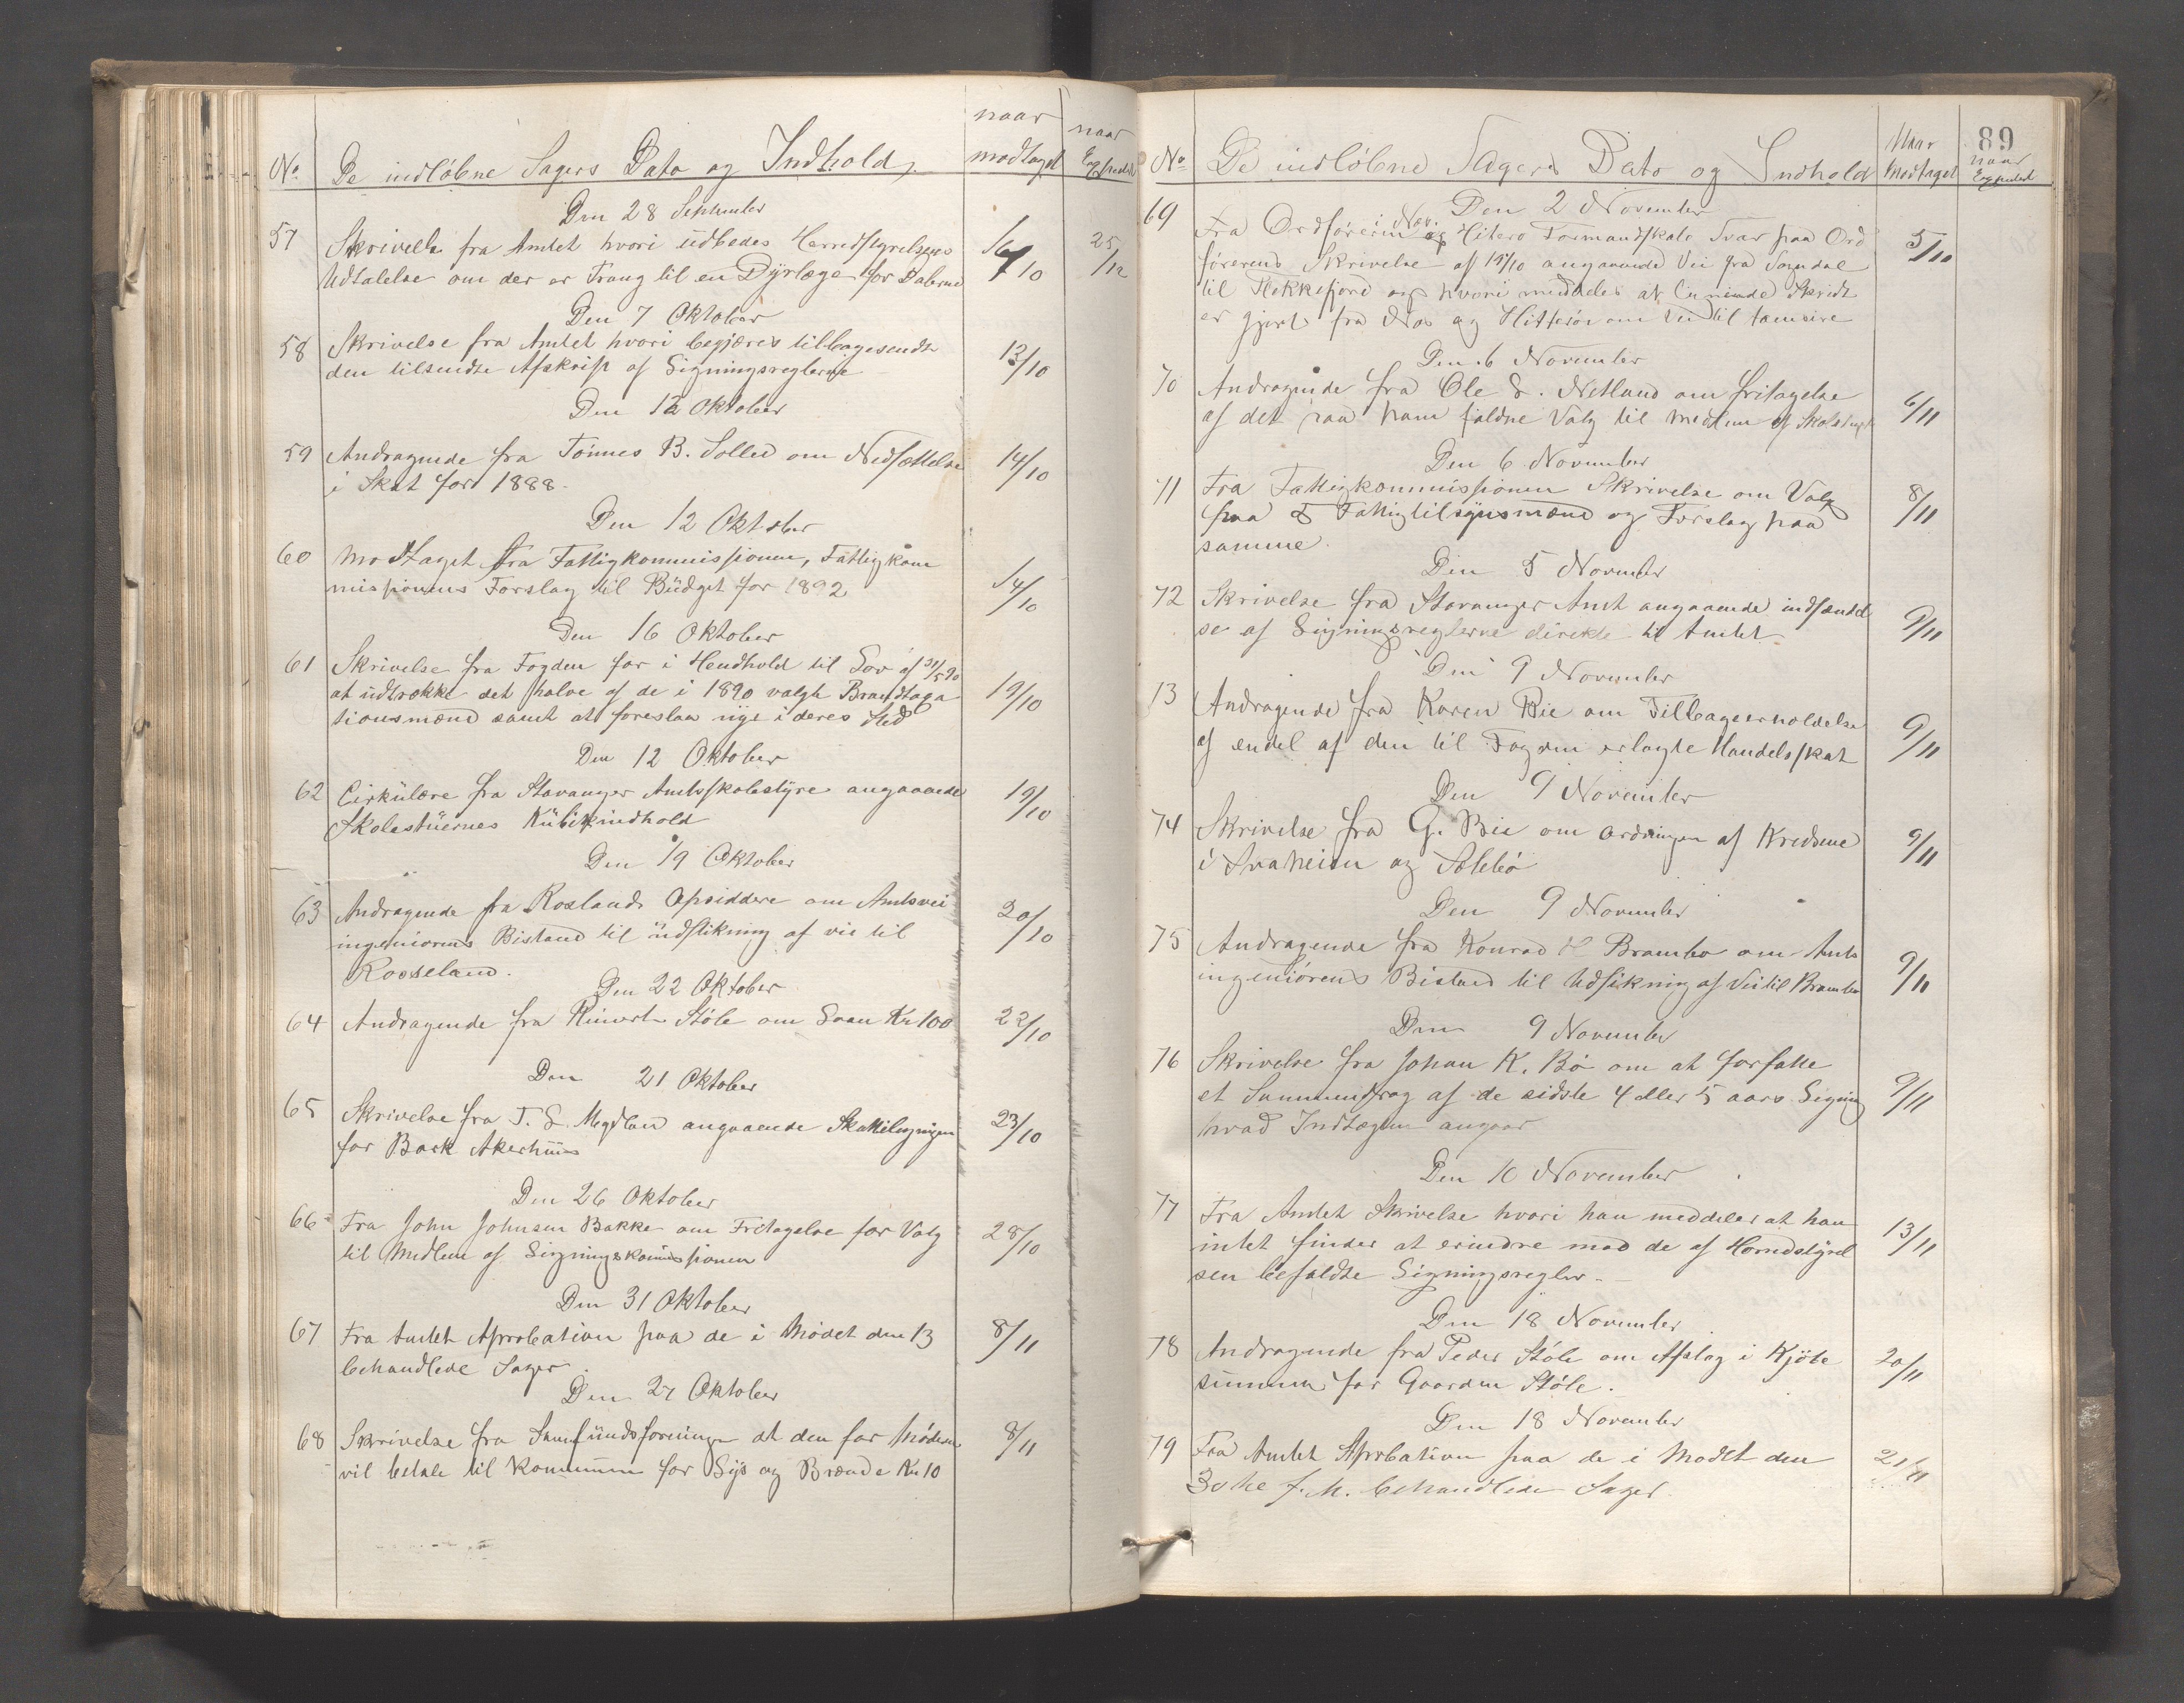 No. De indløbne Sagers Dato og Indhold. naar modtaget naar Exspederet
Den 28 September
57 Skrivelse fra Amtet hvori udbedes Herredstyrelsens
Udtalelse om der er Trang til en Dyrlæge for Dalerne 7/10 25/12
Den 7 Oktober
58 Skrivelse fra Amtet hvori begjæres tilbagesendt
den tilsendte Afskrift af Ligningsreglerne 13/10
Den 12 Oktober
59 Andragende fra Tønnes B. Solled om Nedsættelse
i Skat for 1888. 14/10
Den 12 Oktober
60 Modtaget fra Fattigkommissionen, Fattigkom
missionens Forslag til Büdget for 1892 14/10
Den 16 Oktober
61 Skrivelse fra Fogden for i Henhold til Lov af 31/5 90
at udtrække det halve af de i 1890 valgte Brandtaxa
tionsmænd samt at foreslaa nye i deres Sted 19/10
Den 12 Oktober
62 Cirkülære fra Stavanger Amtsskolestyre angaaende
Skolestüernes Kübikindhold 19/10
Den 19 Oktober
63 Andragende fra Roslands Opsiddere om Amtsvei
ingeniørens Bistand til üdstikning af vei til
Rosseland. 20/10
Den 22 Oktober
64 Andragende fra Støle om Laan Kr 100 22/10
Den 21 Oktober
65 Skrivelse fra T. S. angaaende Skatteligningen
for Bark Akershüs 23/10
Den 26 Oktober
66 Fra John Johnsen Bakke om Fritagelse for Valg
til Medlem af Ligningskommissionen 28/10
Den 31 Oktober
67 Fra Amtet Aprobation paa de i Mødet den 13
behandlede Sager. 8/11
Den 27 Oktober
68 Skrivelse fra Samfündsforeningen at den for Møderne
vil betale til Kommünen for Lys og Brænde Kr 10 8/11
89
No. De indløbne Sagers Dato og Indhold Naar Modtaget naar Expederet
Den 2 November
69 Fra Ordføreren i Nes og Hitterø Formandskab Svar paa Ord
førerens Skrivelse af 19/10 angaaende Vei fra Sogndal
til Flekkefjord og hvori meddeles at Skridt
er gjort fra Nes og Hitterø om Vei til 5/10
Den 6 November
70 Andragende fra Ole S. Netland om fritagelse
af det paa ham faldne Valg til medlem af Skolestyret 6/11
Den 6 November
71 Fra Fattigkommissionen Skrivelse om Valg
paa 5 Fattigtilsynsmænd og Forslag paa
samme. 8/11
Den 5 November
72 Skrivelse fra Stavanger Amt angaaende indsændel
se af Ligningsreglerne direkte til Amtet 9/11
Den 9 November
73 Andragende fra Karen Bie om Tilbageerholdelse
af endel af den til Fogden erlagte Handelsskat 9/11
Den 9 November
74 Skrivelse fra G. Bie om ordningen af Kredsene
i Svaheien og Ålebø 9/11
Den 9 November
75 Andragende fra Konrad Brambo om Amts
ingeniørens Bistand til Udstikning af Vei til Brambo 9/11
Den 9 November
76 Skrivelse fra Johan K. Bø om at forfatte
et Sammendrag af de sidste 4 eller 5 aars Ligning
hvad Indtægten angaar 9/11
Den 10 November
77 Fra Amtet Skrivelse hvori han meddeler at han
intet finder at erindre mod de af Herredstyrel
sen befaldte Ligningsregler. 13/11
Den 18 November
78 Andragende fra Peder Støle om Afslag i Kjøbe
summen for Gaarden Støle. 20/11
Den 18 November
79 Fra Amtet Aprobation paa de i Mødet den
30te f. M. behandlede Sager. 21/11